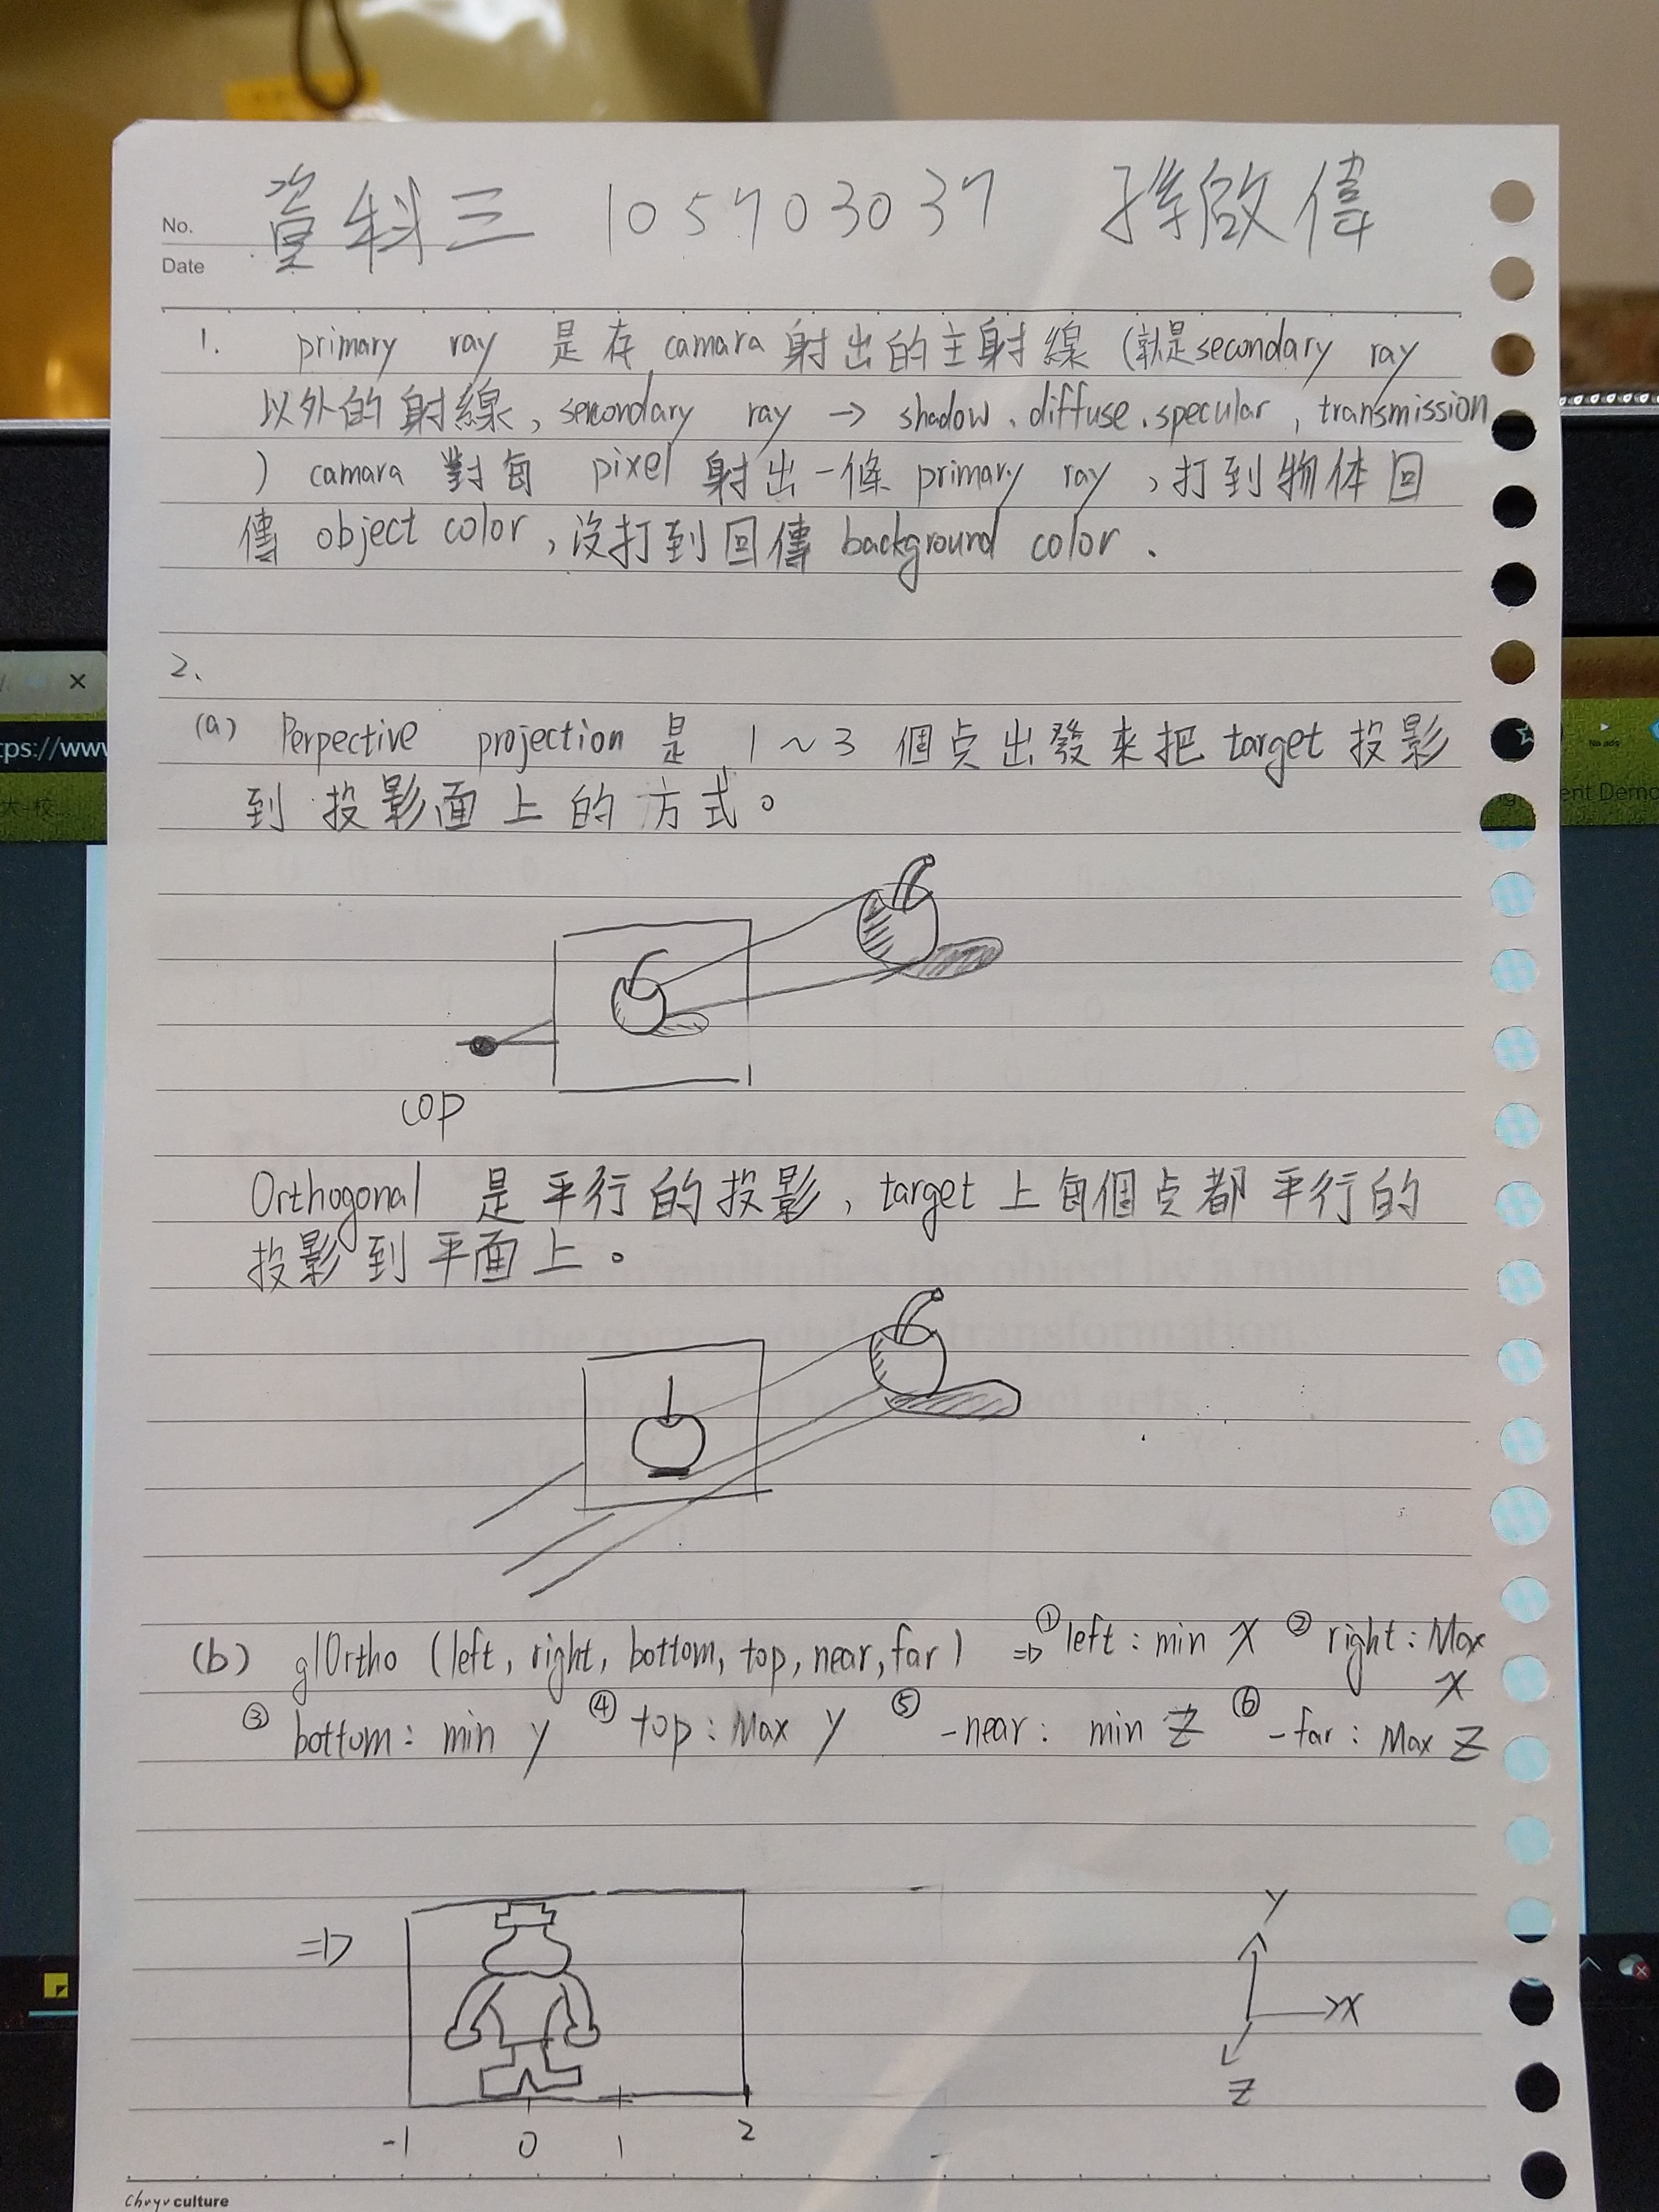 No.
Date
資科三 105703037 孫啟偉
1. primary ray 是在 camara 射出的主射線 (就是 secondary ray
以外的射線, secondary ray → shadow、diffuse、specular, transmission
) camara 對每 pixel 射出一條 primary ray, 打到物体回
傳 object color, 沒打到回傳 background color.
2、
(a) Perpective projection 是 1~3 個点出發來把 target 投影
到投影面上的方式。
COP
Orthogonal 是平行的投影, target 上每個点都平行的
投影到平面上。
(b) glOrtho (left, right, bottom, top, near, far) ⇒ ① left : min X ② right : Max
X
③ bottom : min y ④ top : Max y ⑤ -near : min Z ⑥ -far : Max Z
⇒
Y
X
Z
-1 0 1 2
Chuyu culture
tps://www
大-校...
ent Demo
No ads